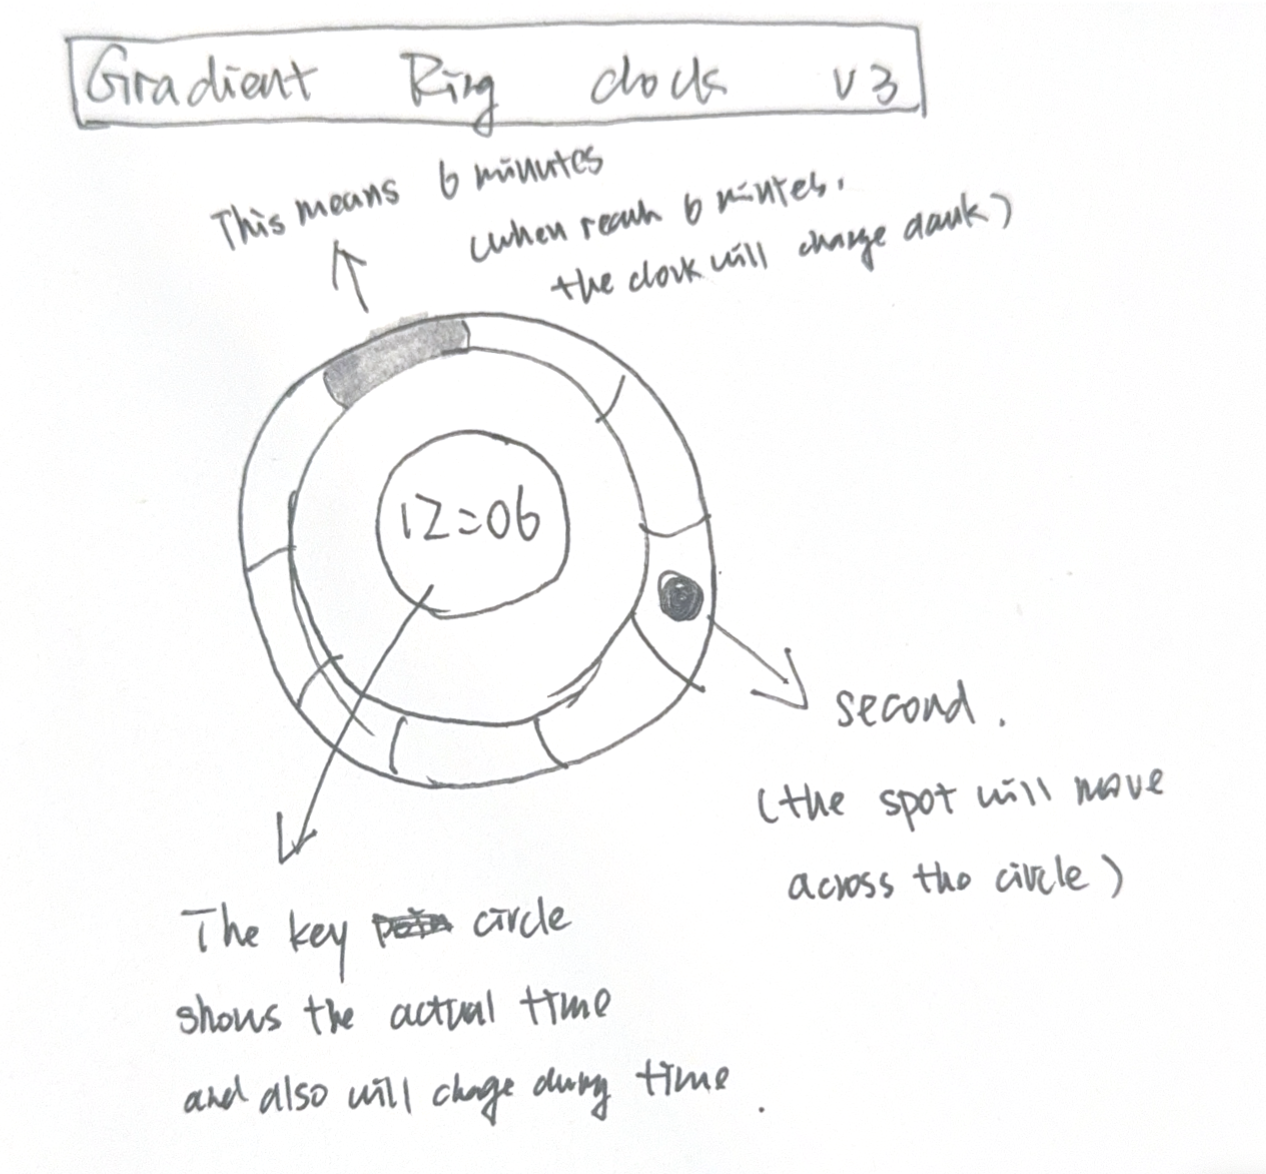 Gradient Ring clock v3
This means 6 minutes
(when reach 6 mintes,
the clork will change dark)
12:06
second.
(the spot will move
across the circle)
The key circle
shows the actual time
and also will chage durng time.